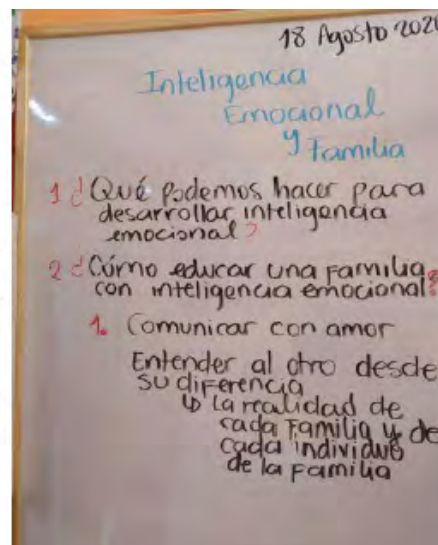 18 Agosto 202
Inteligencia
Emocional
y Familia
1 ¿Qué podemos hacer para
desarrollar inteligencia
emocional?
2 ¿Cómo educar una familia
con inteligencia emocional?
1. Comunicar con amor
Entender al otro desde
su diferencia
↳ La realidad de
cada familia y de
cada individuo
de la familia